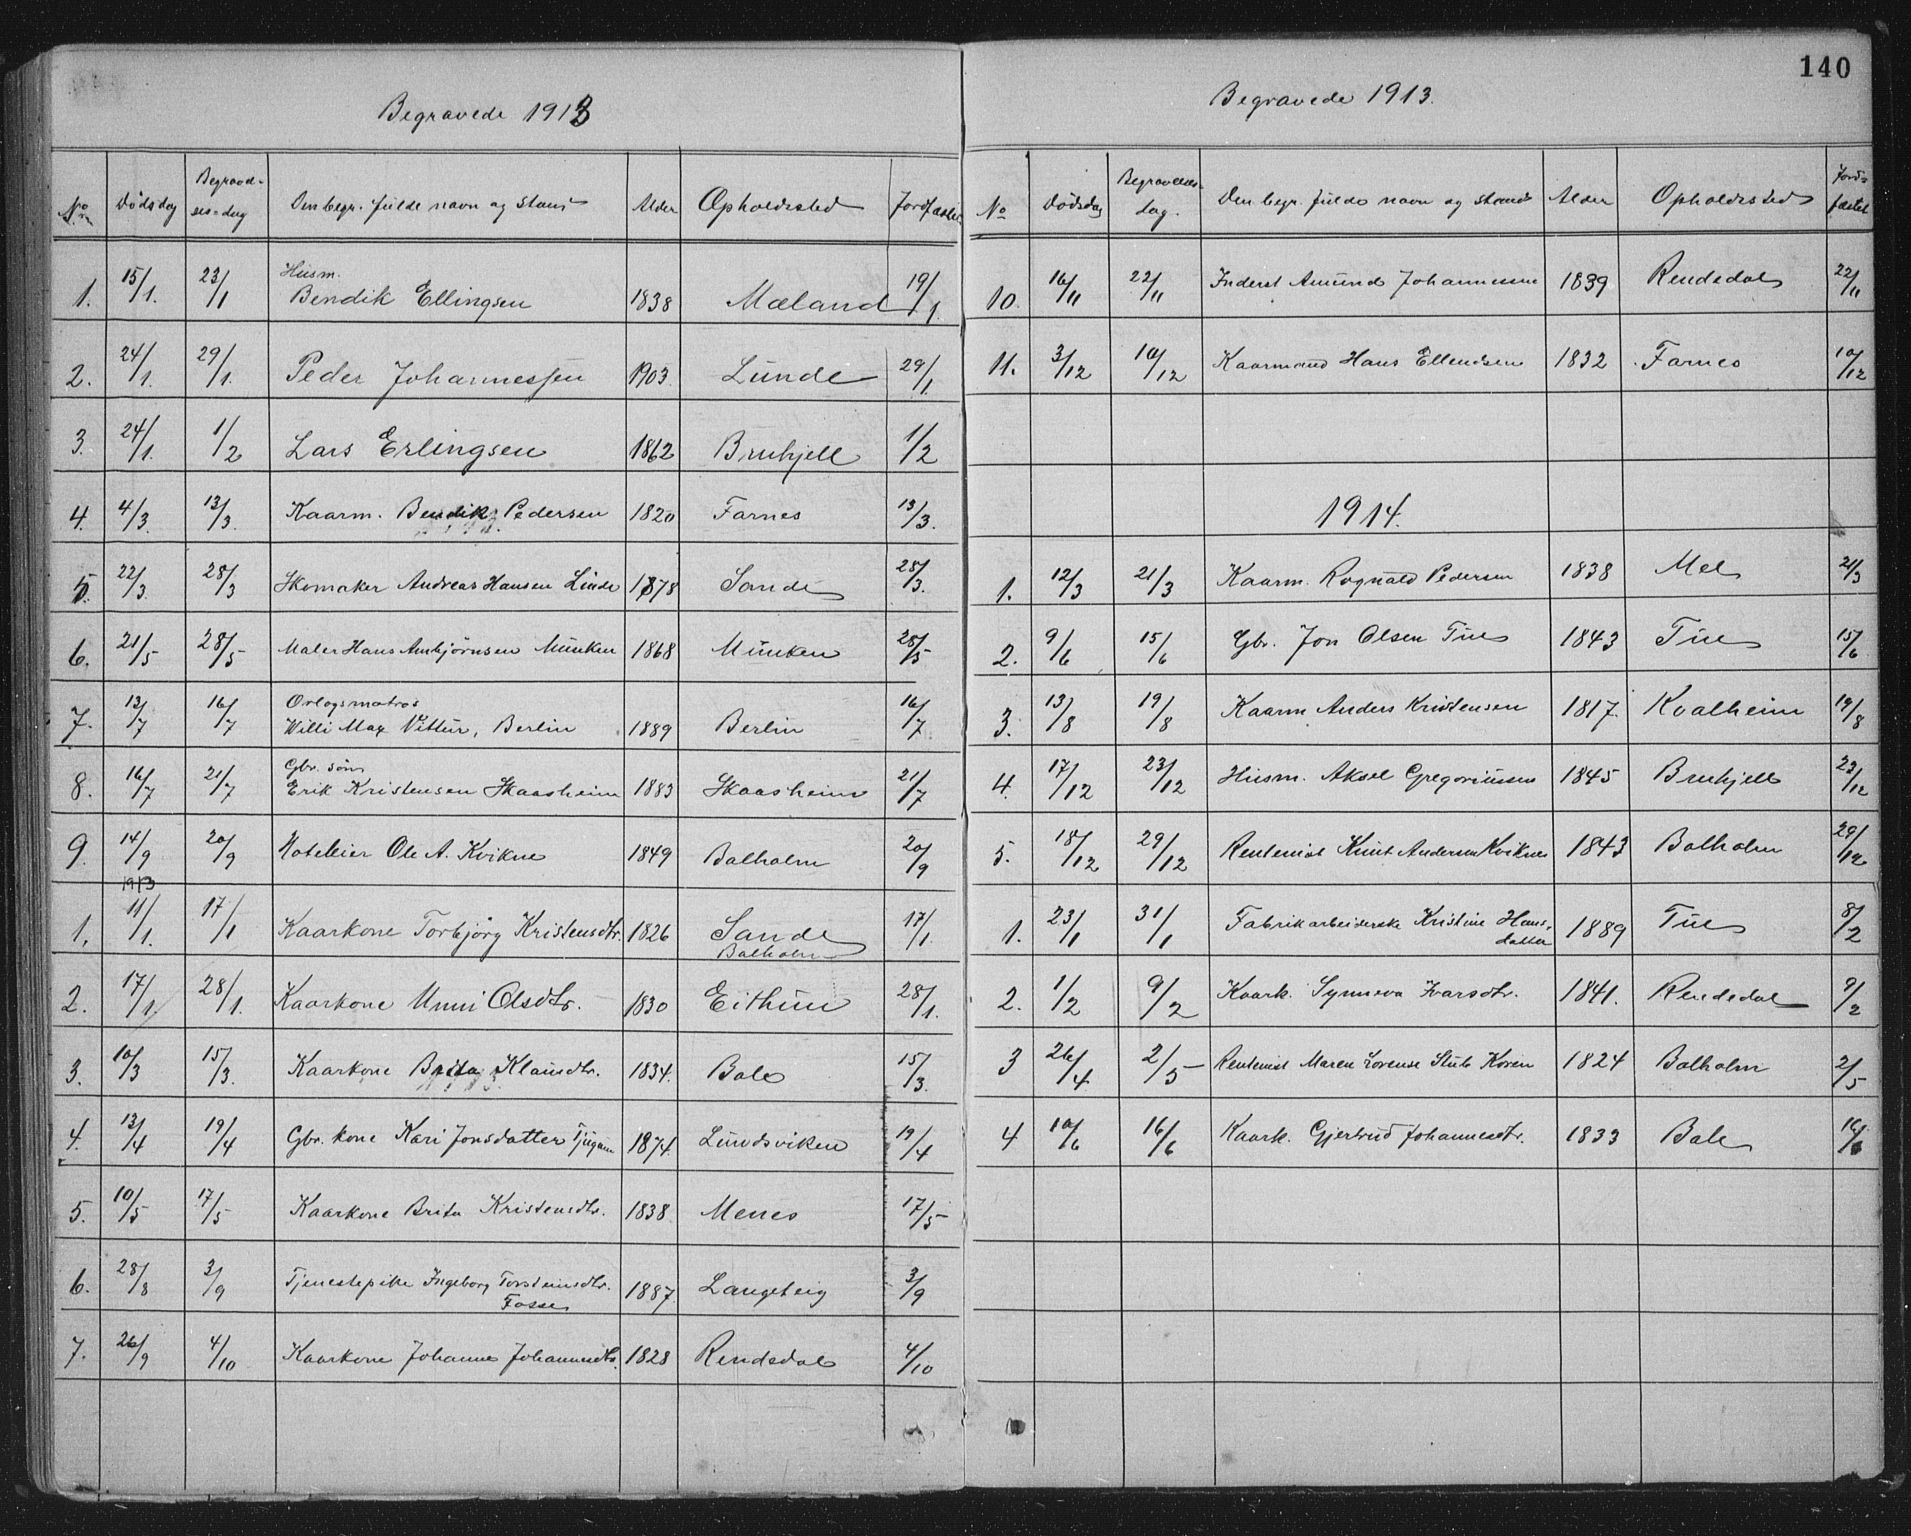 Begravede 1913
No Dødsdag Begravelsesdag Den begr. fulde navn og stand Alder Opholdssted Jordfæstet
1. 15/1. 23/1 Husm. Bendik Ellingsen 1838 Mæland 19/1.
2. 24/1. 29/1. Peder Johannessen 1903 Lunde 29/1.
3. 24/1. 1/2 Lars Erlingsen 1862 Bruhjell 1/2
4. 4/3. 13/3. Kaarm. Bendik Pedersen 1820 Farnes 13/3.
5. 22/3. 28/3 Skomaker Andreas Hansen Linde 1878 Sande 28/3.
6. 21/5 28/5 Maler Hans Anbjørnsen Munken 1868 Munken 28/5
7. 13/7 16/7 Orlogsmatros Willi Max Vittur, Berlin 1889 Berlin 16/7
8. 16/7 21/7 Gbr. søn Erik Kristensen Skaasheim 1883 Skaasheim 21/7
9. 14/9 20/9 Hoteleier Ole A. Kvikne 1849 Balholm 20/9
1913
1. 11/1. 17/1 Kaarkone Torbjørg Kristensdtr. 1826 Sande Balholm 17/1.
2. 17/1 28/1. Kaarkone Unni Olsdtr. 1830 Eithun 28/1.
3. 10/3 15/3. Kaarkone Brita Klausdtr. 1834. Bale 15/3.
4. 13/4 19/4 Gbr. kone Kari Jonsdatter Tjugum 1874. Lundsviken 19/4
5. 10/5 17/5 Kaarkone Brita Kristensdtr. 1838 Menes 17/5
6. 28/8 3/9 Tjenestepike Ingeborg Torsteinsdtr. Fosse 1887 Langeteig 3/9
7. 26/9 4/10 Kaarkone Johanne Johannesdtr. 1828 Rendedal 4/10
140
Begravede 1913.
No Dødsdag Begravelsesdag. Den begr. fulde navn og stand Alder Opholdssted Jordfæstet
10. 16/11 22/11 Inderst Amund Johannessen 1839 Rendedal 22/11
11. 3/12 10/12 Kaarmand Hans Ellendsen 1832 Farnes 10/12
1914.
1. 12/3 21/3 Kaarm. Rognald Pedersen 1838 Mel 21/3
2. 9/6 15/6 Gbr. Jon Olsen Tue 1843 Tue 15/6
3. 13/8 19/8 Kaarm Anders Kristensen 1817. Kvalheim 19/8
4. 17/12 23/12 Husm. Aksel Gregoriussen 1845 Bruhjell 23/12
5. 18/12 29/12 Rentenist Knut Andersen Kvikne 1843 Balholm 29/12
1. 23/1 31/1 Fabrikarbeiderske Kristine Hansdatter 1889 Tue 8/2
2. 1/2 9/2 Kaark. Synneva Ivarsdtr. 1841. Rendedal 9/2
3 26/4 2/5 Rentenist Maren Lorense Stub Koren 1824 Balholm 2/5
4 10/6 16/6 Kaark. Gjertrud Johannesdtr. 1833 Bale 16/6